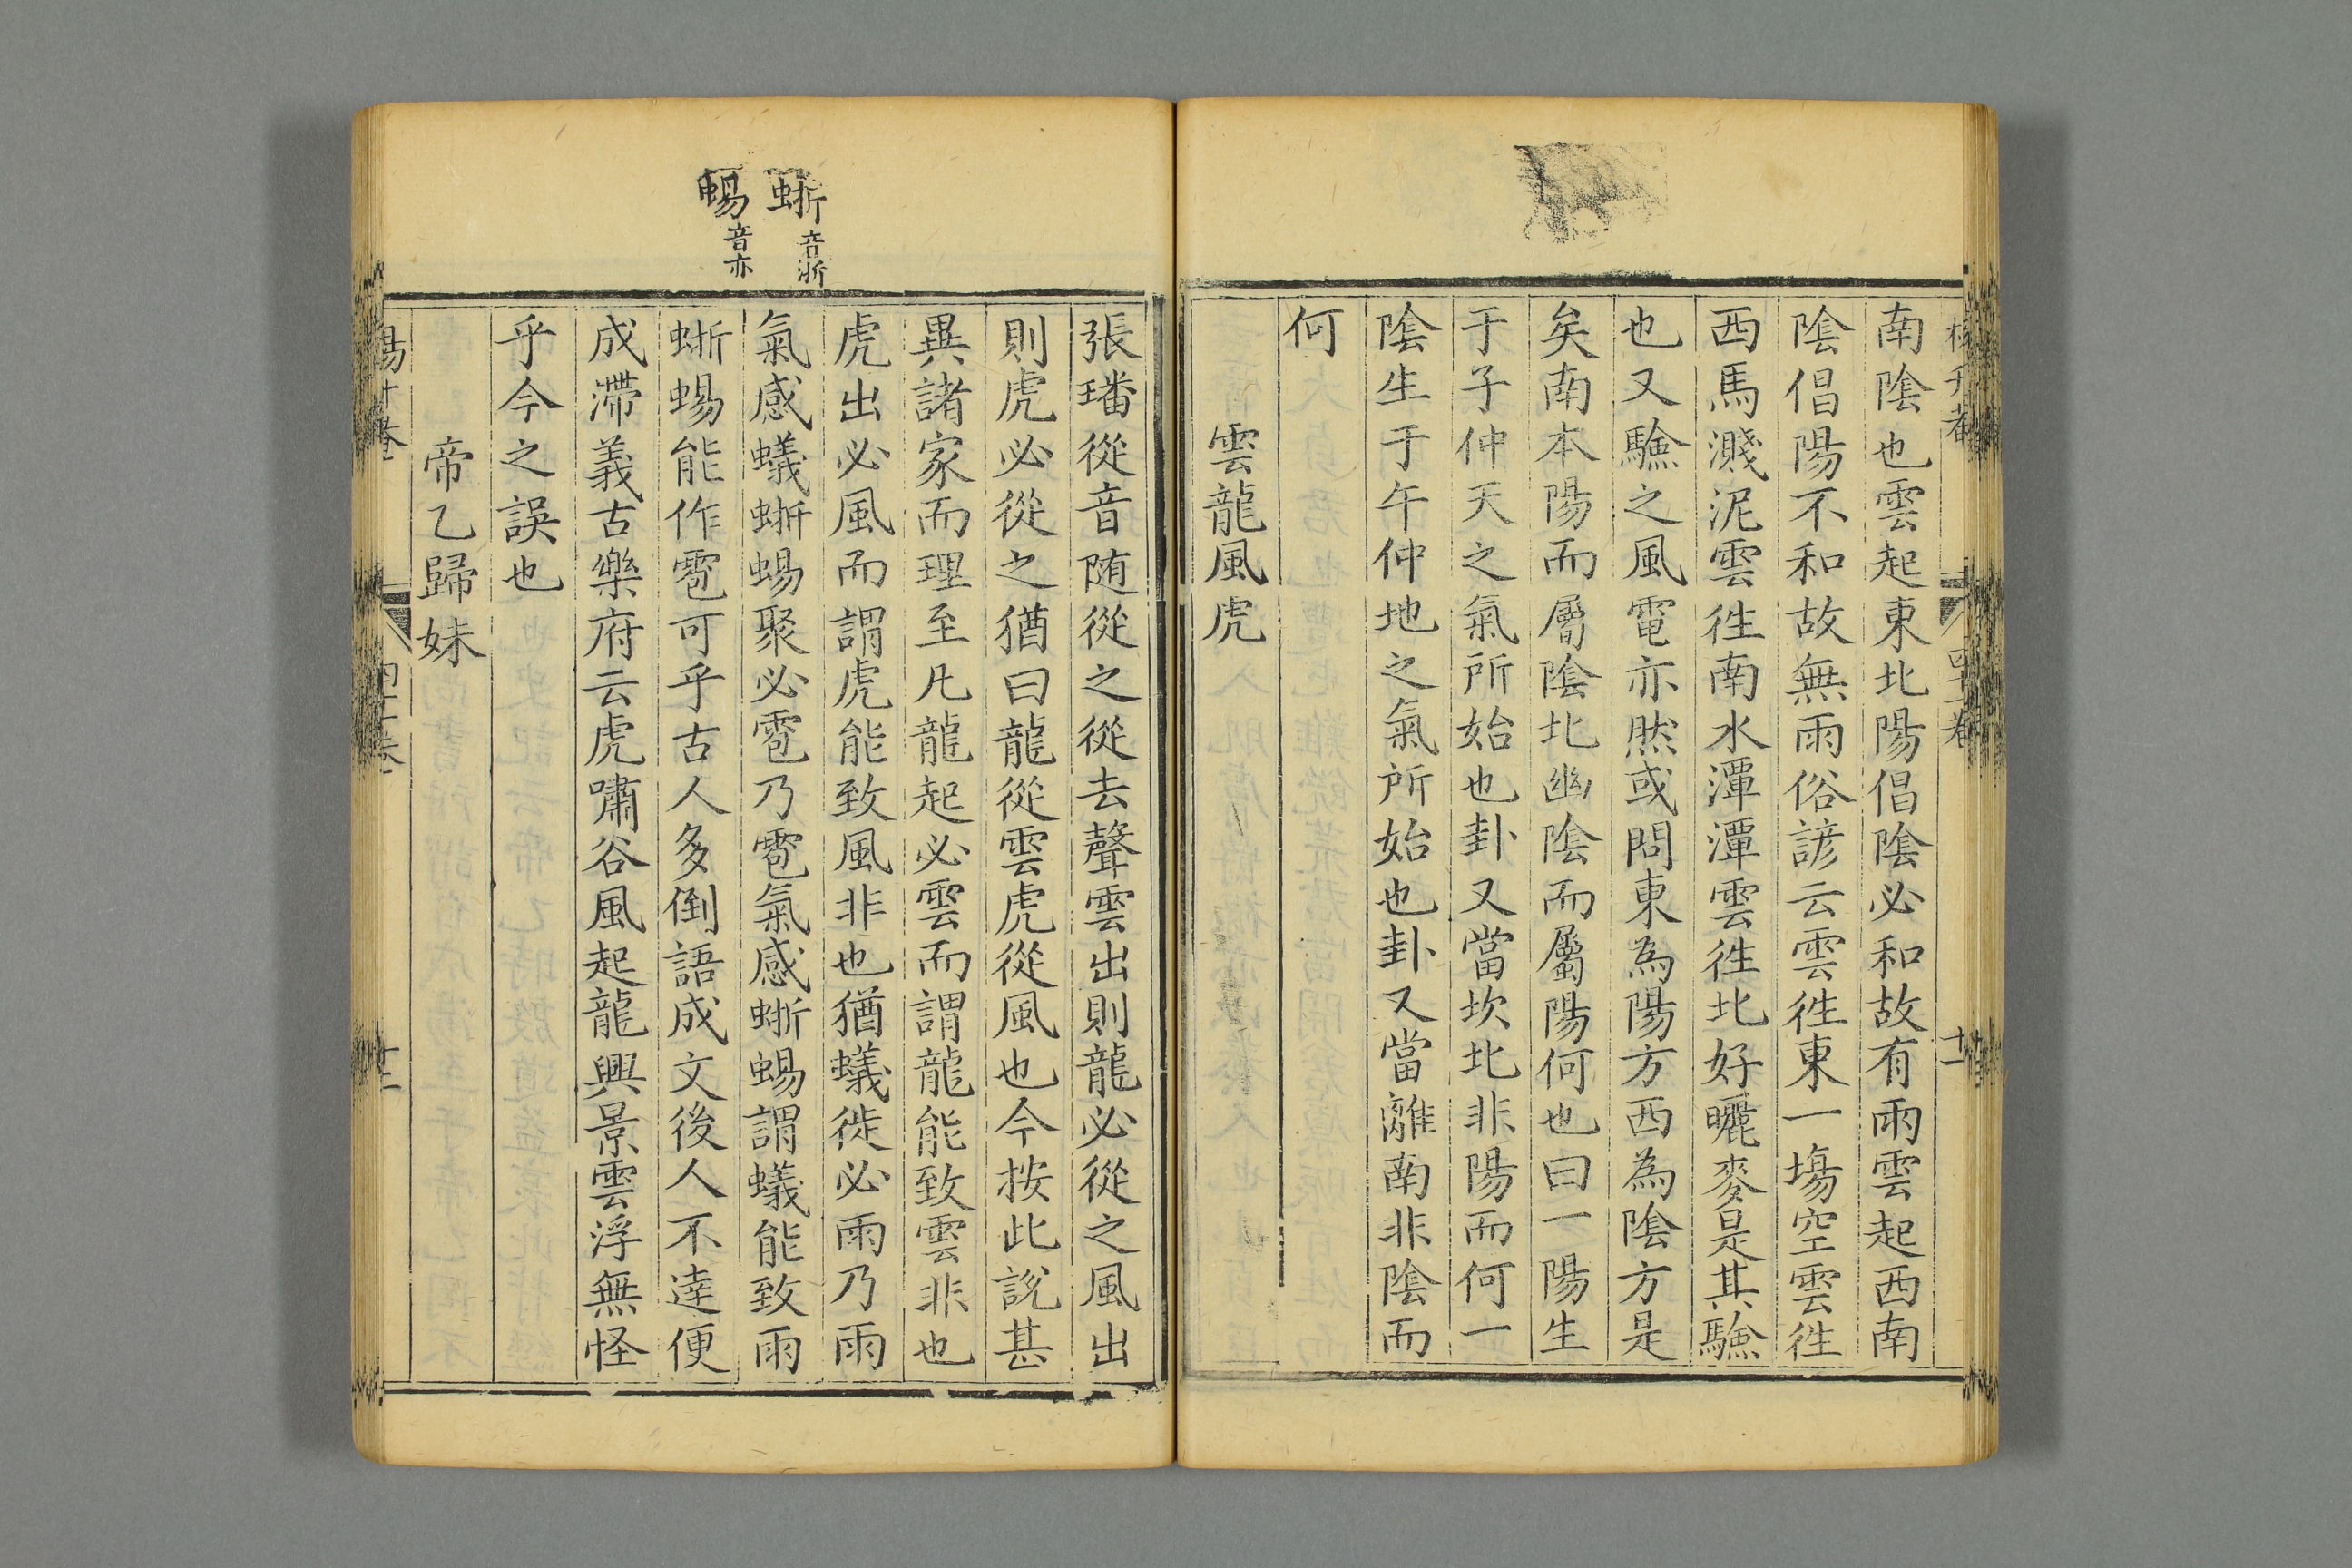 南陰也雲起東北陽倡陰必和故有雨雲起西南
陰倡陽不和故無雨俗諺云雲徃東一塲空雲徃
西馬濺泥雲徃南水潭潭雲徃北好曬麥是其驗
也又驗之風電亦然或問東為陽方西為陰方是
矣南本陽而屬陰北幽陰而屬陽何也曰一陽生
于子仲天之氣所始也卦又當坎北非陽而何一
陰生于午仲地之氣所始也卦又當離南非陰而
何
雲龍風虎
蜥音淅
蜴音亦
張璠從音随從之從去聲雲出則龍必從之風出
則虎必從之猶曰龍從雲虎從風也今按此說甚
異諸家而理至凡龍起必雲而謂龍能致雲非也
虎出必風而謂虎能致風非也猶蟻徙必雨乃雨
氣感蟻蜥蜴聚必雹乃雹氣感蜥蜴謂蟻能致雨
蜥蜴能作雹可乎古人多倒語成文後人不達便
成滯義古樂府云虎嘯谷風起龍興景雲浮無怪
乎今之誤也
帝乙歸妹